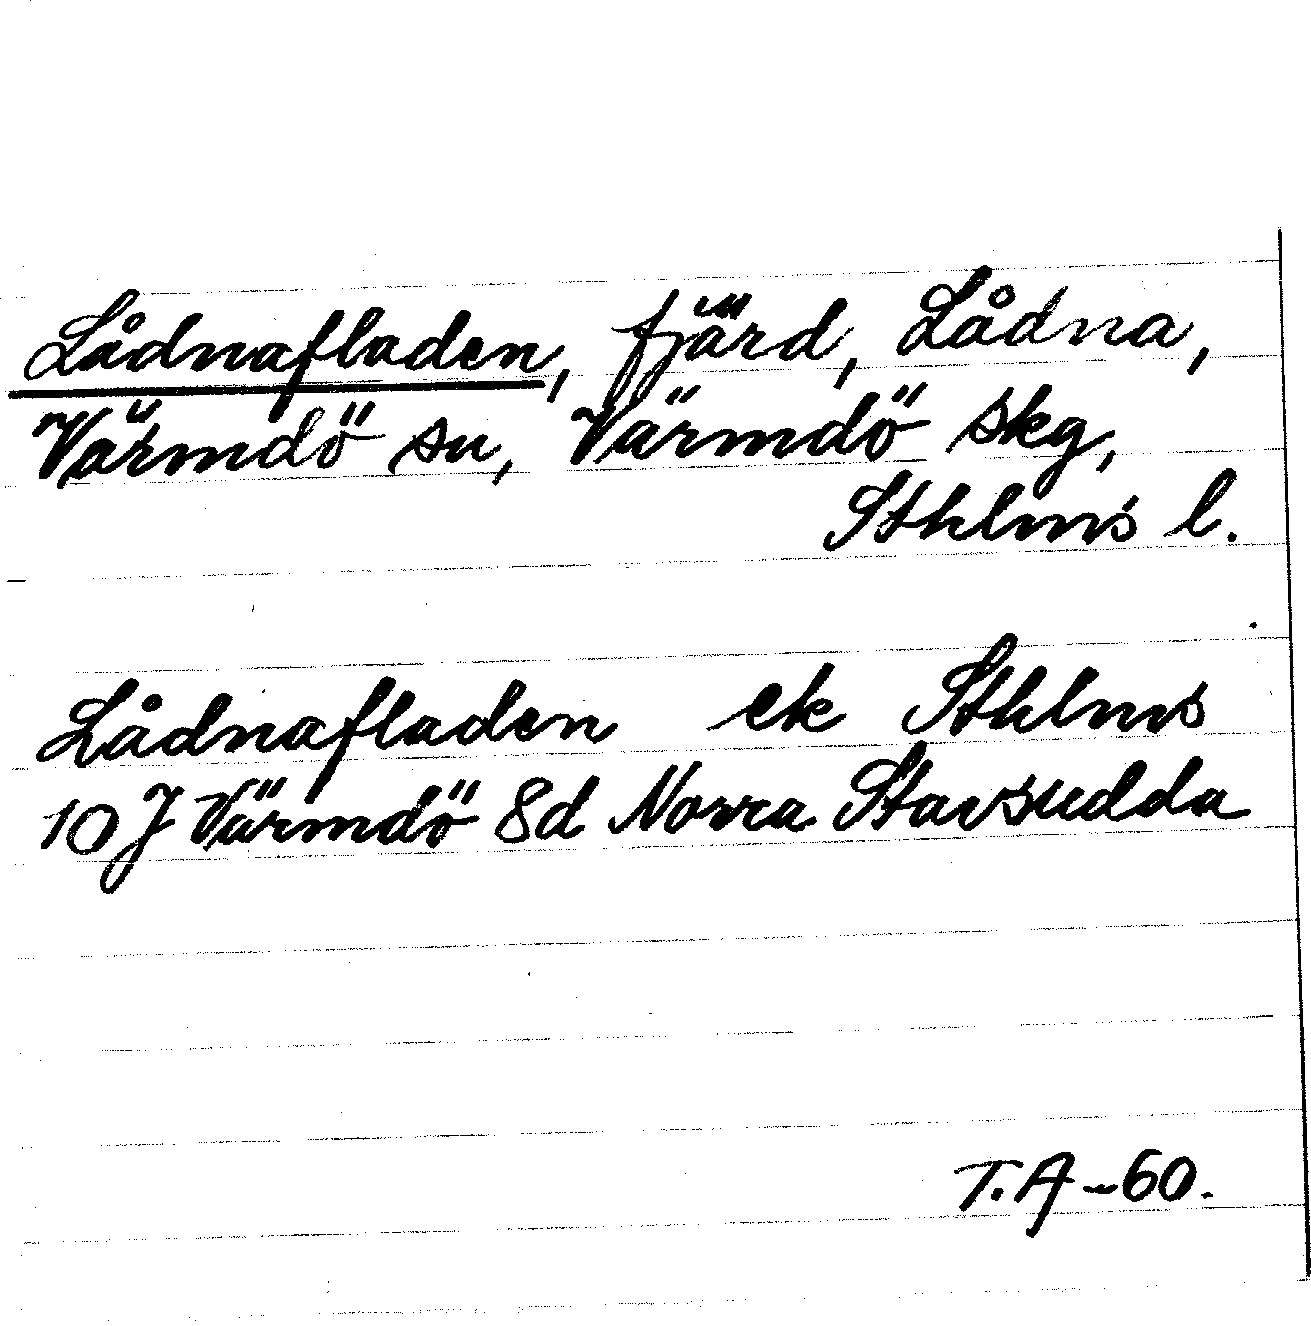 Lådnafladen, fjärd, Lådna,
Värmdö sn, Värmdö skg,
Sthlms l.
Lådnafladen ek Sthlms
10 J Värmdö 8d Norra Stavsudda
T.A -60.